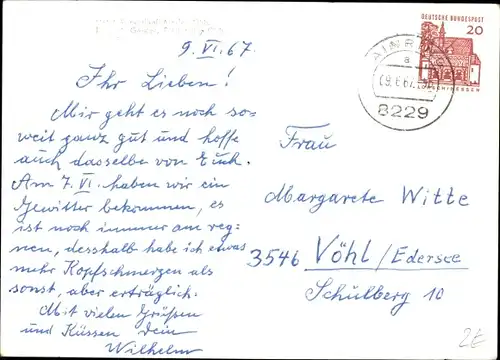 9. VI. 67.
Ihr Lieben!
Mir geht es noch so-
weit ganz gut und hoffe
auch dasselbe von Euch.
Am 7. VI. haben wir ein
Gewitter bekommen, es
ist noch immer am reg-
nen, desshalb habe ich etwas
mehr Kopfschmerzen als
sonst, aber erträglich.
Mit vielen Grüßen
und Küssen Dein
Wilhelm
DEUTSCHE BUNDESPOST
20
AINRING
a
09.6.67
8229
Frau
Margarete Witte
3546 Vöhl/Edersee
Schulberg 10
2€